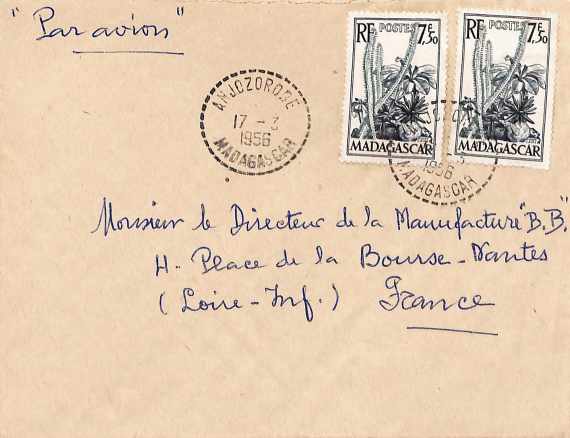 "Par avion"
RF POSTES 7F,50
MADAGASCAR
RF POSTES 7F,50
MADAGASCAR
ANJOZOROBE
17 - 3
1956
MADAGASCAR
1956
MADAGASCAR
Monsieur le Directeur de la Manufacture "B.B."
4- Place de la Bourse - Nantes
(Loire-Inf.) France